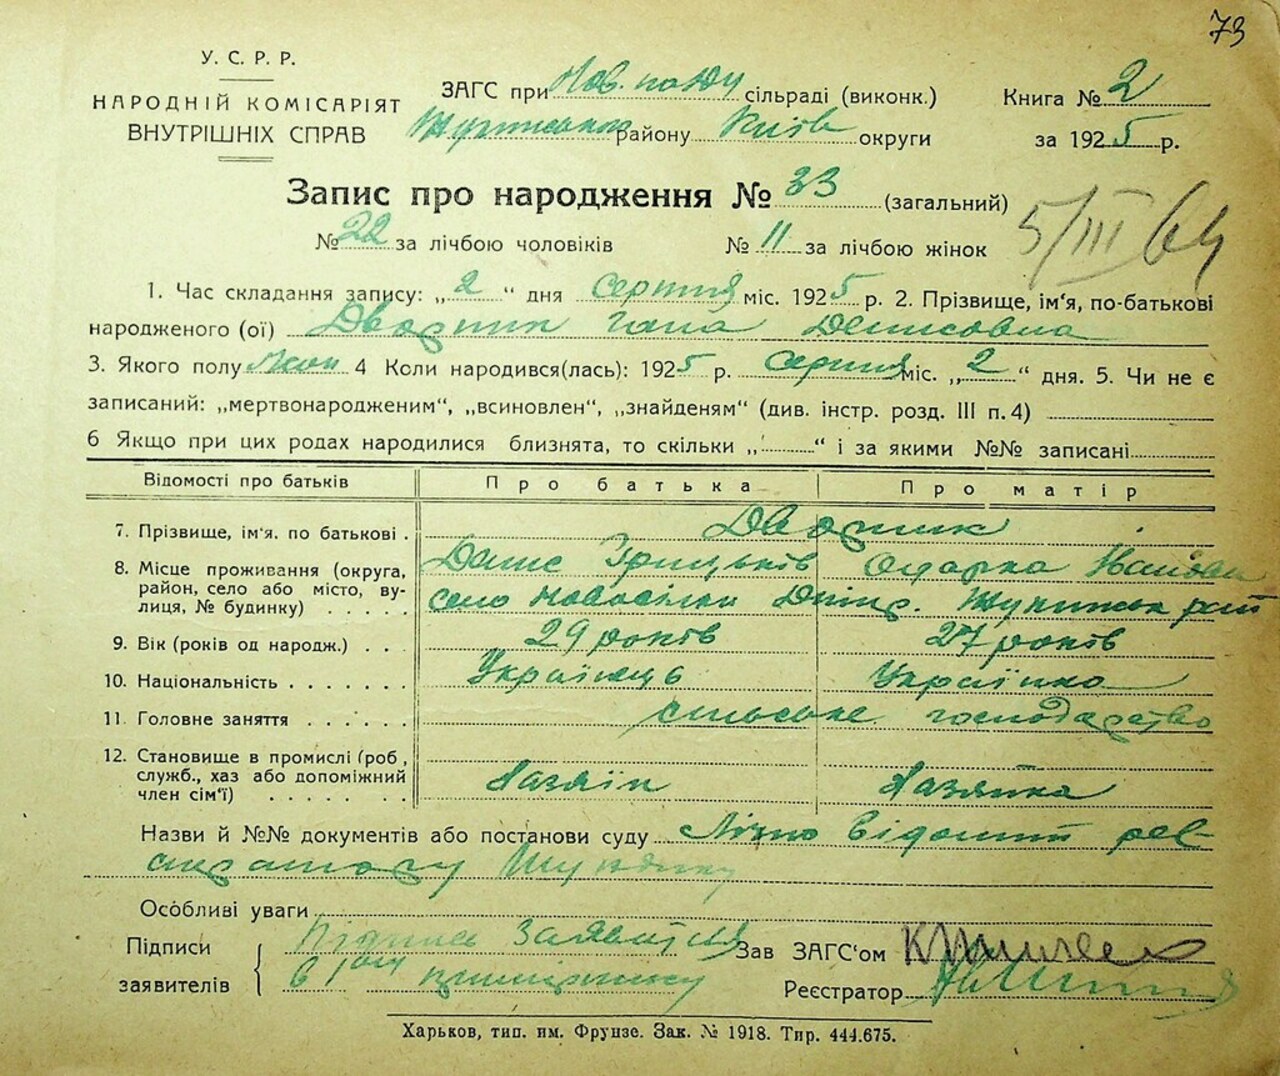 73
У. С. Р. Р.
НАРОДНІЙ КОМІСАРІЯТ
ВНУТРІШНІХ СПРАВ
ЗАГС при сільраді (виконк.)
району Київ округи
Книга № 2
за 1925 р.
Запис про народження № 33 (загальний)
№ 22 за лічбою чоловіків № 11 за лічбою жінок
5/III 64
1. Час складання запису: „2“ дня серпня міс. 1925 р. 2. Прізвище, ім'я, по-батькові
народженого (ої) Дворник Ганa Денисовна
3. Якого полу жон 4 Коли народився(лась): 1925 р. серпня міс. „2“ дня. 5. Чи не є
записаний: „мертвонародженим“, „всиновлен“, „знайденям“ (див. інстр. розд. III п. 4)
6 Якщо при цих родах народилися близнята, то скільки „ “ і за якими №№ записані
Відомості про батьків Про батька Про матір
7. Прізвище, ім'я. по батькові . Дворник
Денис Грицьків Одарка Іванова
8. Місце проживання (округа,
район, село або місто, ву-
лиця, № будинку)
село Новосілки Дніпр.
9. Вік (років од народж.) 29 років 27 років
10. Національність Українець Українка
11. Головне заняття сільське господарство
12. Становище в промислі (роб,
служб., хаз або допоміжний
член сім'ї) Хазяїн Хазяйка
Назви й №№ документів або постанови суду Лічно відомий реє-
стратору
Особливі уваги
Підписи
заявителів
Підписи заявителя
в 1ом примірнику
Зав ЗАГС'ом
Реєстратор
Харьков, тип. им. Фрунзе. Зак. № 1918. Тир. 444.675.